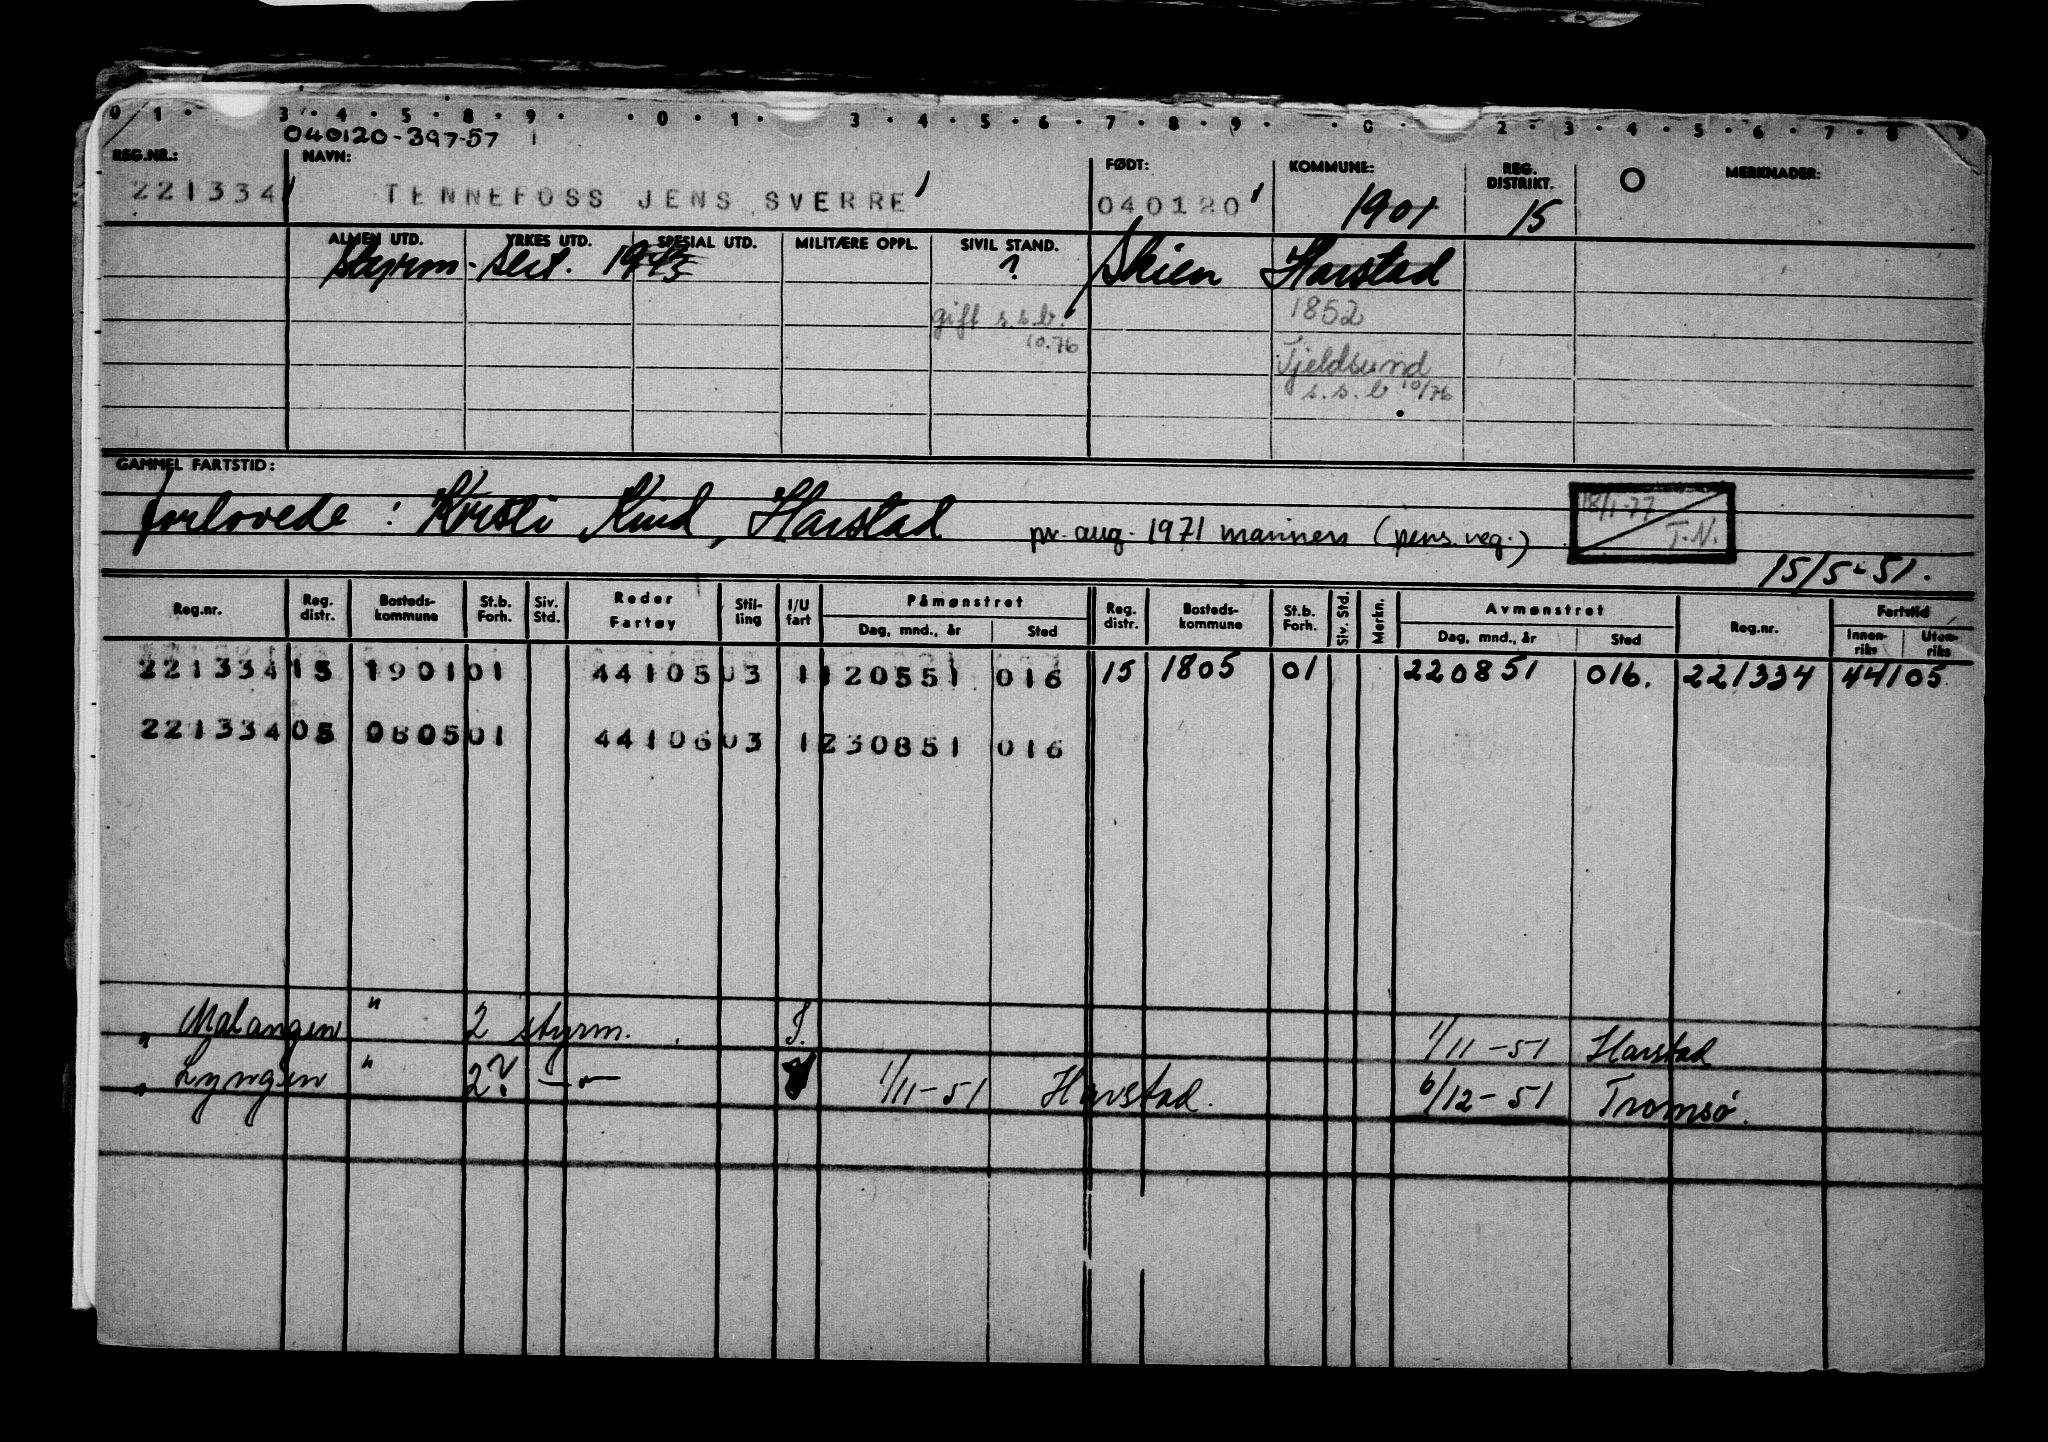 0 1 · 3 · 4 · 5 · 8 · 9 · · 0 · 1 · 3 · 4 · 5 · 6 · 7 · 8 · 9 · · 0 · 2 · 3 · 4 · 5 · 6 · 7 · 8 · 9
040120-397-57
REG.NR.: NAVN: FØDT: KOMMUNE: REG. DISTRIKT. O MERKNADER:
221334 TENNEFOSS JENS SVERRE 040120 1901 15
ALMEN UTD. YRKES UTD. SPESIAL UTD. MILITÆRE OPPL. SIVIL STAND.
Styrm. sert. 1943 ? Skien Harstad
gift s.s.b. 1852
10.76
Tjeldsund
s.s.b 10/76
GAMMEL FARTSTID:
forlovede : Kirsti Kind, Harstad pr. aug. 1971 mariners (pens. reg.) 18/1-77 T.N.
15/5-51.
Reg.nr. Reg. distr. Bosteds-kommune St.b. Forh. Siv. Std. Reder Fartøy Stil-ling I/U fart Påmønstret Reg. distr. Bosteds-kommune St.b. Forh. Siv. Std. Merkn. Avmønstret Reg.nr. Fartstid
Dag, mnd., år Sted Dag, mnd., år Sted Innen-riks Uten-riks
221334 15 1901 01 44105 03 1 120551 016 15 1805 01 220851 016. 221334 44105
221334 05 0605 01 44106 03 1 230851 016
" Malangen " 2 styrm. I. 1/11-51 Harstad
" Lyngen " 2? — " — 1/11-51 Harstad. 6/12-51 Tromsø.